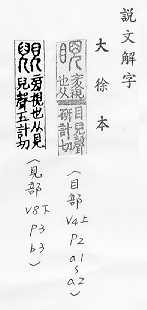 說文解字
大徐本
睨 衺視也从目兒聲研計切
(目部 V4上 P2 a1 s a2)
視也从見兒聲五計切
(見部 V8下 P3 b3)